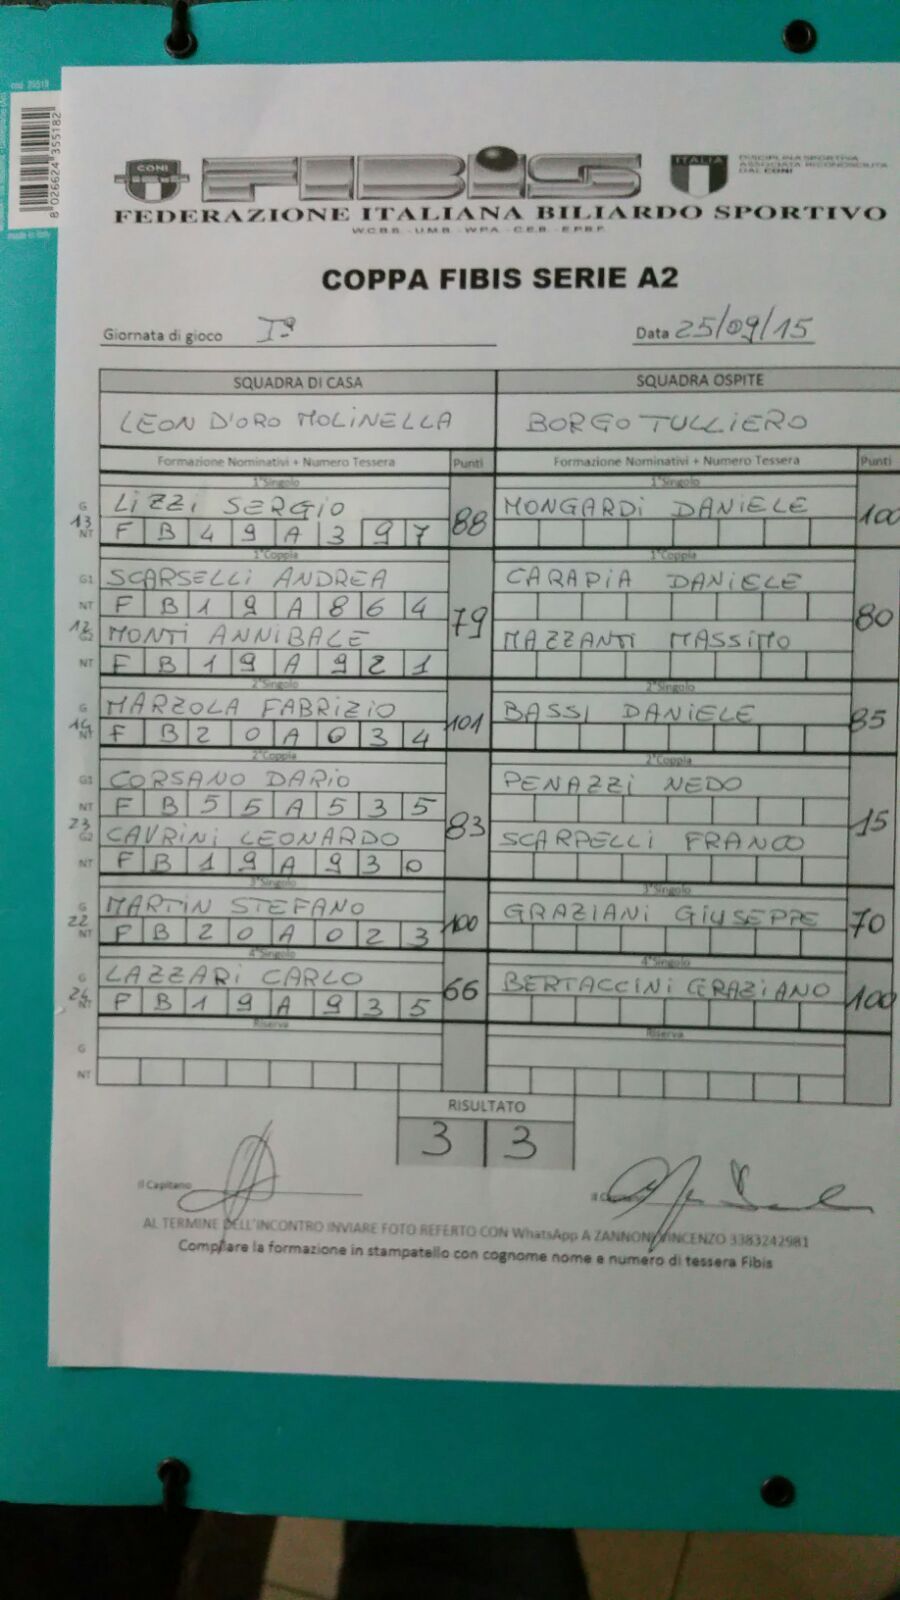 cod. 35518
8 026624 355182
made in Italy
CONI
FIBiS
ITALIA
DISCIPLINA SPORTIVA
ASSOCIATA RICONOSCIUTA
DAL CONI
FEDERAZIONE ITALIANA BILIARDO SPORTIVO
W.C.B.S. - U.M.B. - W.P.A. - C.E.B. - E.P.B.F.
COPPA FIBIS SERIE A2
Giornata di gioco Iª Data 25/09/15
SQUADRA DI CASA SQUADRA OSPITE
LEON D'ORO MOLINELLA BORGO TULLIERO
Formazione Nominativi + Numero Tessera Punti Formazione Nominativi + Numero Tessera Punti
1°Singolo 1°Singolo
G LIZZI SERGIO 88 MONGARDI DANIELE 100
13
NT F B 4 9 A 3 9 7
1°Coppia 1°Coppia
G1 SCARSELLI ANDREA CARAPIA DANIELE
NT F B 1 9 A 8 6 4 79 80
12 G2 MONTI ANNIBALE MAZZANTI MASSIMO
NT F B 1 9 A 9 2 1
2°Singolo 2°Singolo
G MARZOLA FABRIZIO 101 BASSI DANIELE 85
14
NT F B 2 0 A 0 3 4
2°Coppia 2°Coppia
G1 CORSANO DARIO PENAZZI NEDO
NT F B 5 5 A 5 3 5 83 15
23 G2 CAVRINI LEONARDO SCARPELLI FRANCO
NT F B 1 9 A 9 3 0
3°Singolo 3°Singolo
G MARTIN STEFANO 100 GRAZIANI GIUSEPPE 70
22
NT F B 2 0 A 0 2 3
4°Singolo 4°Singolo
G LAZZARI CARLO 66 BERTACCINI GRAZIANO 100
24
NT F B 1 9 A 9 3 5
Riserva Riserva
G
NT
RISULTATO
3 3
Il Capitano Il Capitano
AL TERMINE DELL'INCONTRO INVIARE FOTO REFERTO CON WhatsApp A ZANNONI VINCENZO 3383242981
Compilare la formazione in stampatello con cognome nome e numero di tessera Fibis